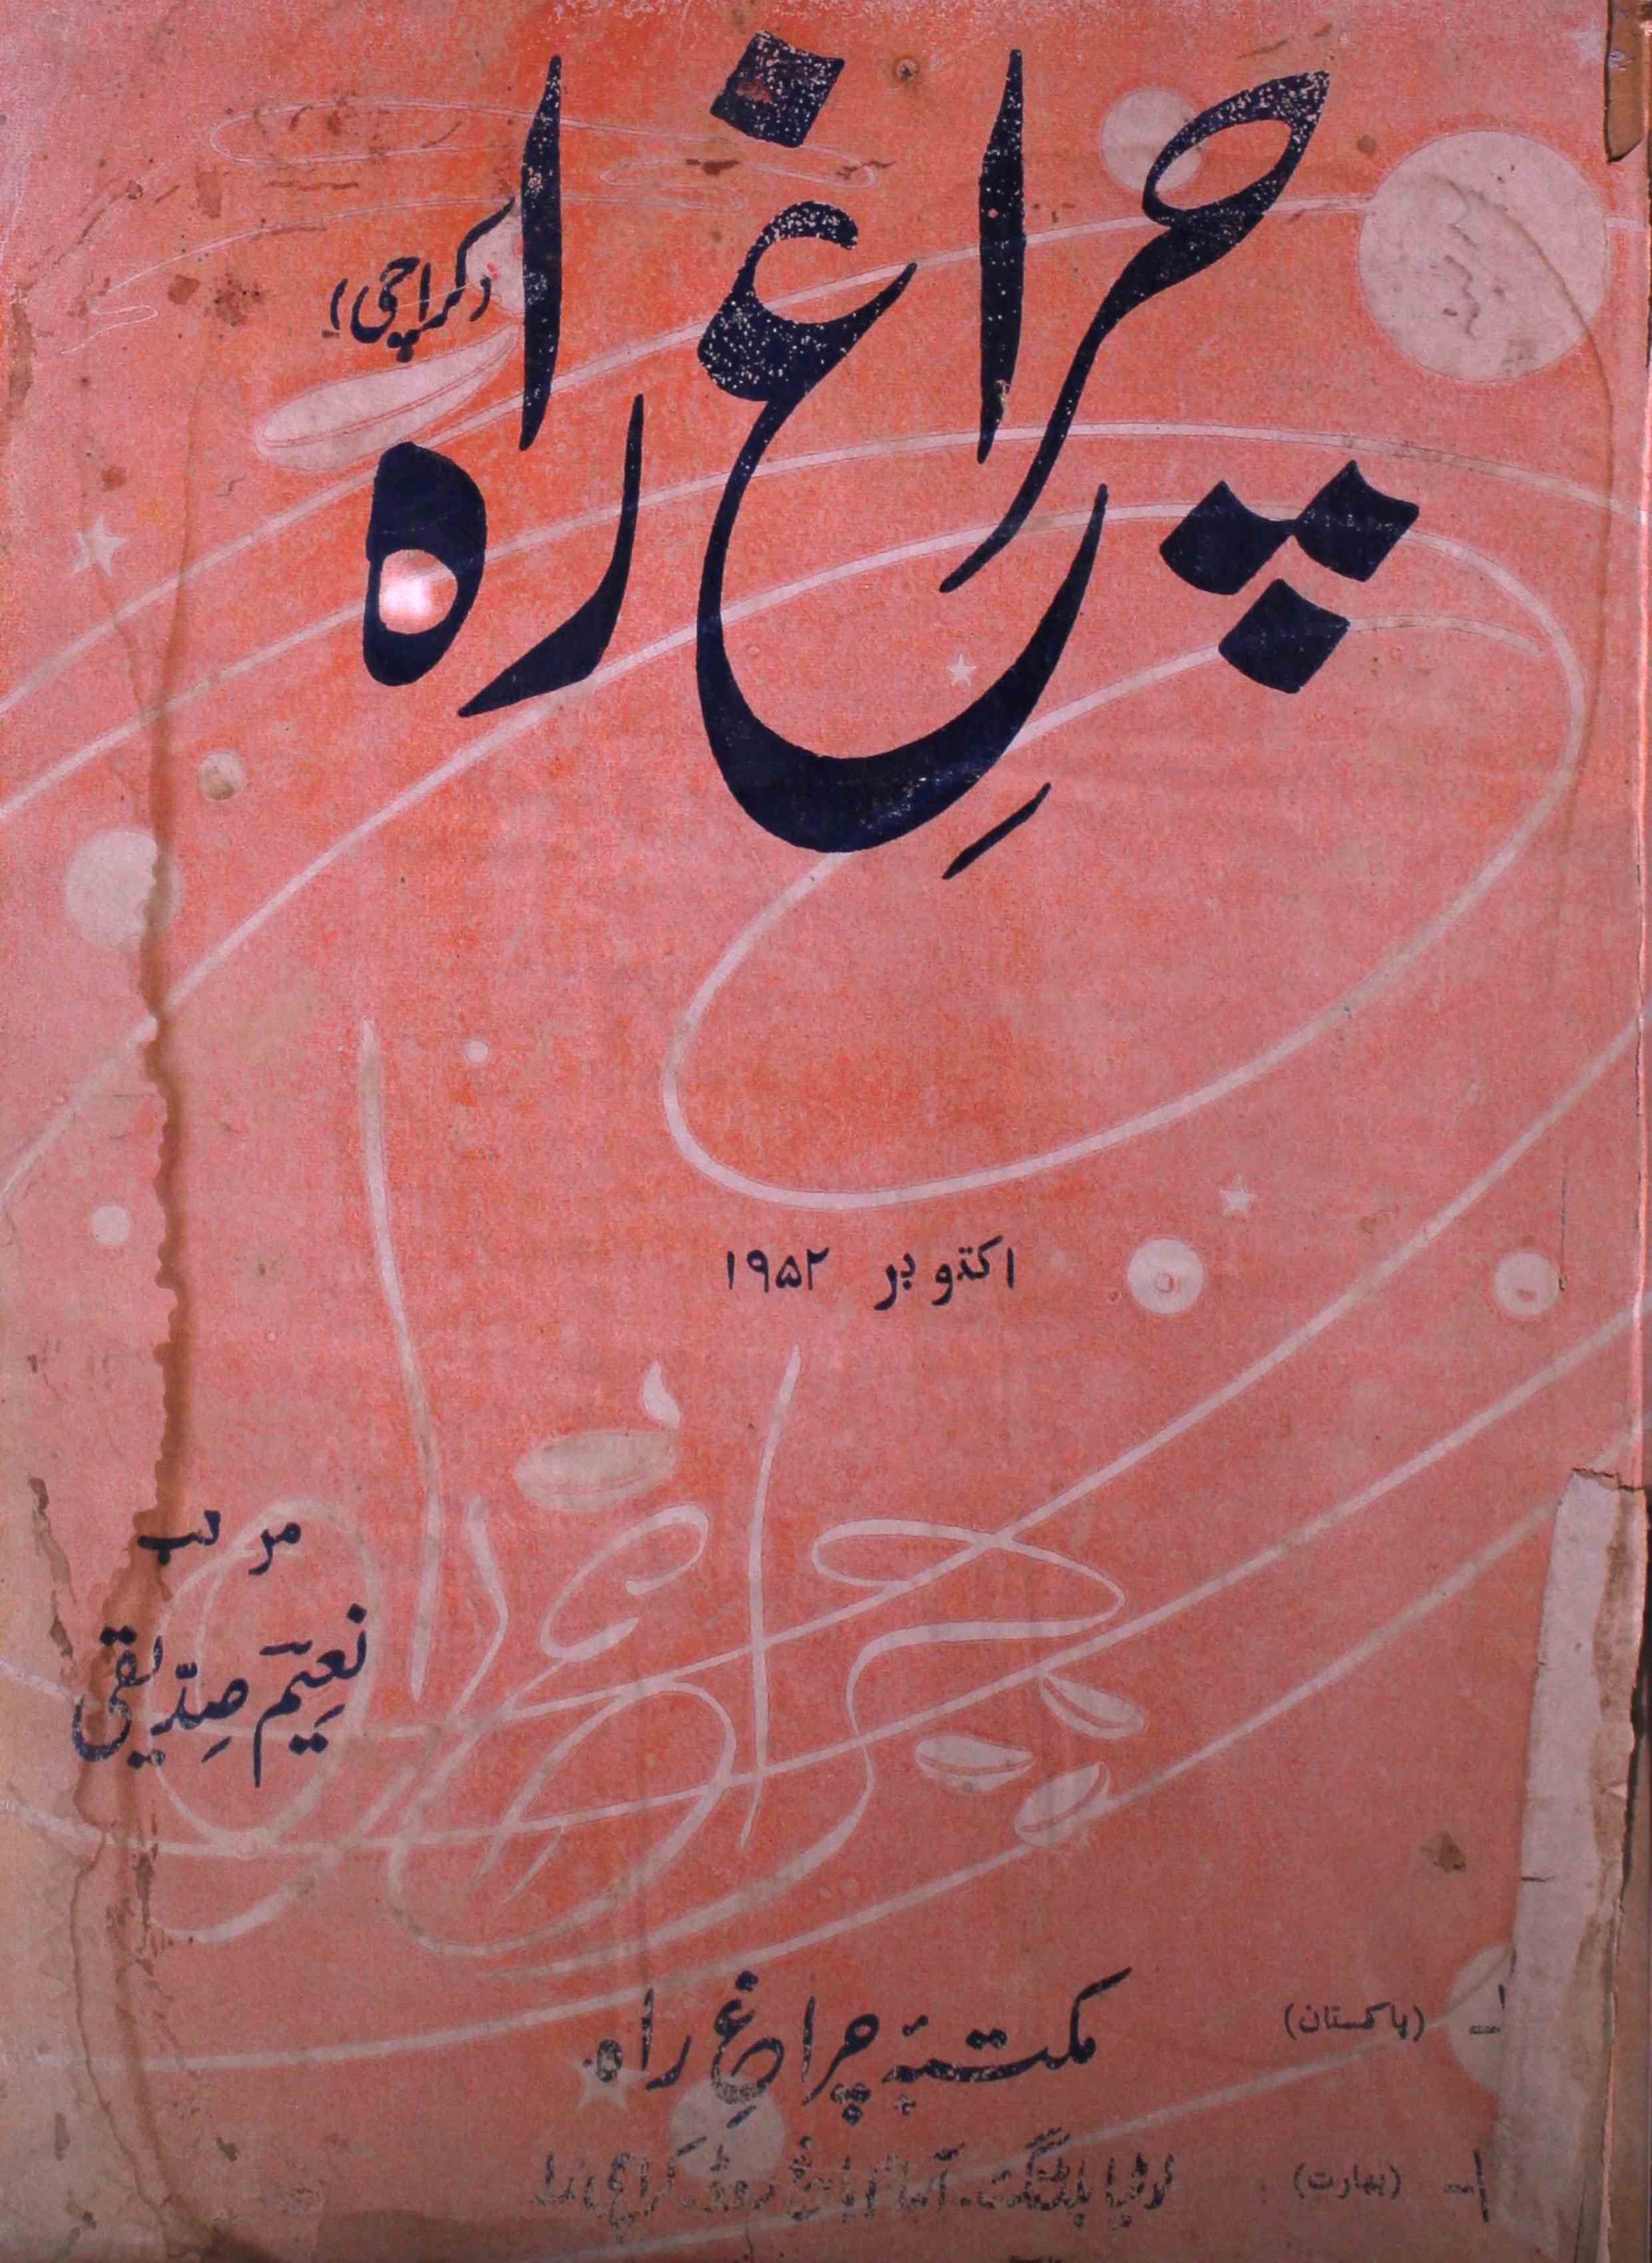 چراغِ راہ
(کراچی)
اکتوبر ۱۹۵۲
مرتب
نعیم صدیقی
مکتبۂ چراغِ راہ
(پاکستان)
(بھارت)